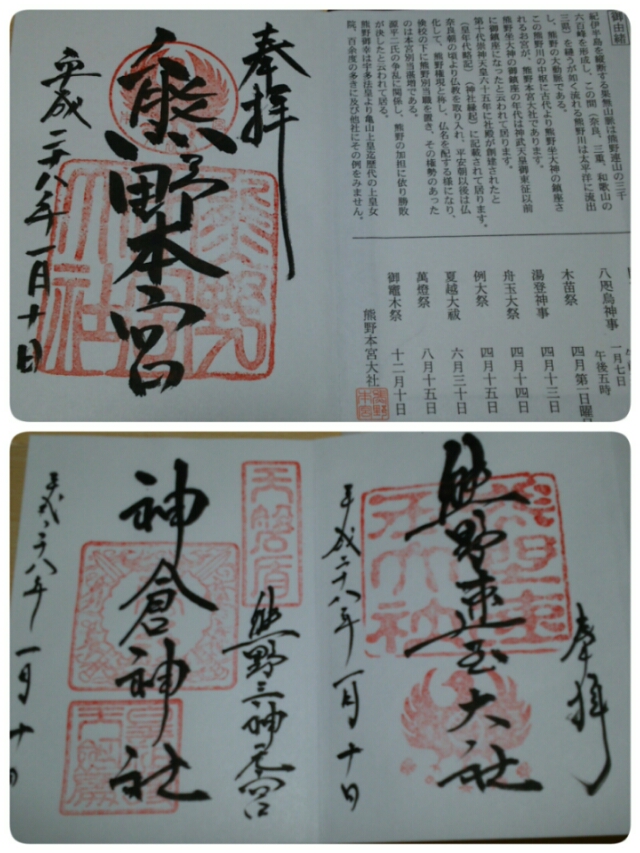 奉拝
熊野本宮
平成二十八年一月十日
御由緒
紀伊半島を縦断する果無山脈は熊野連山の三千
六百峰を形成し、この間(奈良、三重、和歌山の
三県)を縫うが如く流れる熊野川は太平洋に流出
し、熊野の大動脈である。
この熊野川の中枢に古代より熊野坐大神の鎮座さ
れるお宮が、熊野本宮大社であります。
熊野坐大神の御鎮座の年代は神武天皇御東征以前
に御鎮座になったと云われて居ります。
第十代崇神天皇六十五年に社殿が創建されたと
(皇年代略記)(神社縁起)に記載されて居ります。
奈良朝の頃より仏教を取り入れ、平安朝以後は仏
化して、熊野権現と称し、仏名を配する様になり、
後校の下に熊野別当職を置き、その権勢のあった
のは本宮別当湛増である。
源平二氏の争乱に関係し、熊野の加担に依り勝敗
が決したと云われて居る。
熊野御幸は宇多法皇より亀山上皇迄歴代の上皇女
院、百余度の多きに及び他社にその例をみません。
八咫烏神事 一月七日 午後五時
木苗祭 四月第一日曜日
湯登神事 四月十三日
舟玉大祭 四月十四日
例大祭 四月十五日
夏越大祓 六月三十日
萬燈祭 八月十五日
御竈木祭 十二月十日
熊野本宮大社
奉拝
熊野速玉大社
平成二十八年一月十日
天磐盾
熊野三神元宮
神倉神社
平成二十八年一月十日